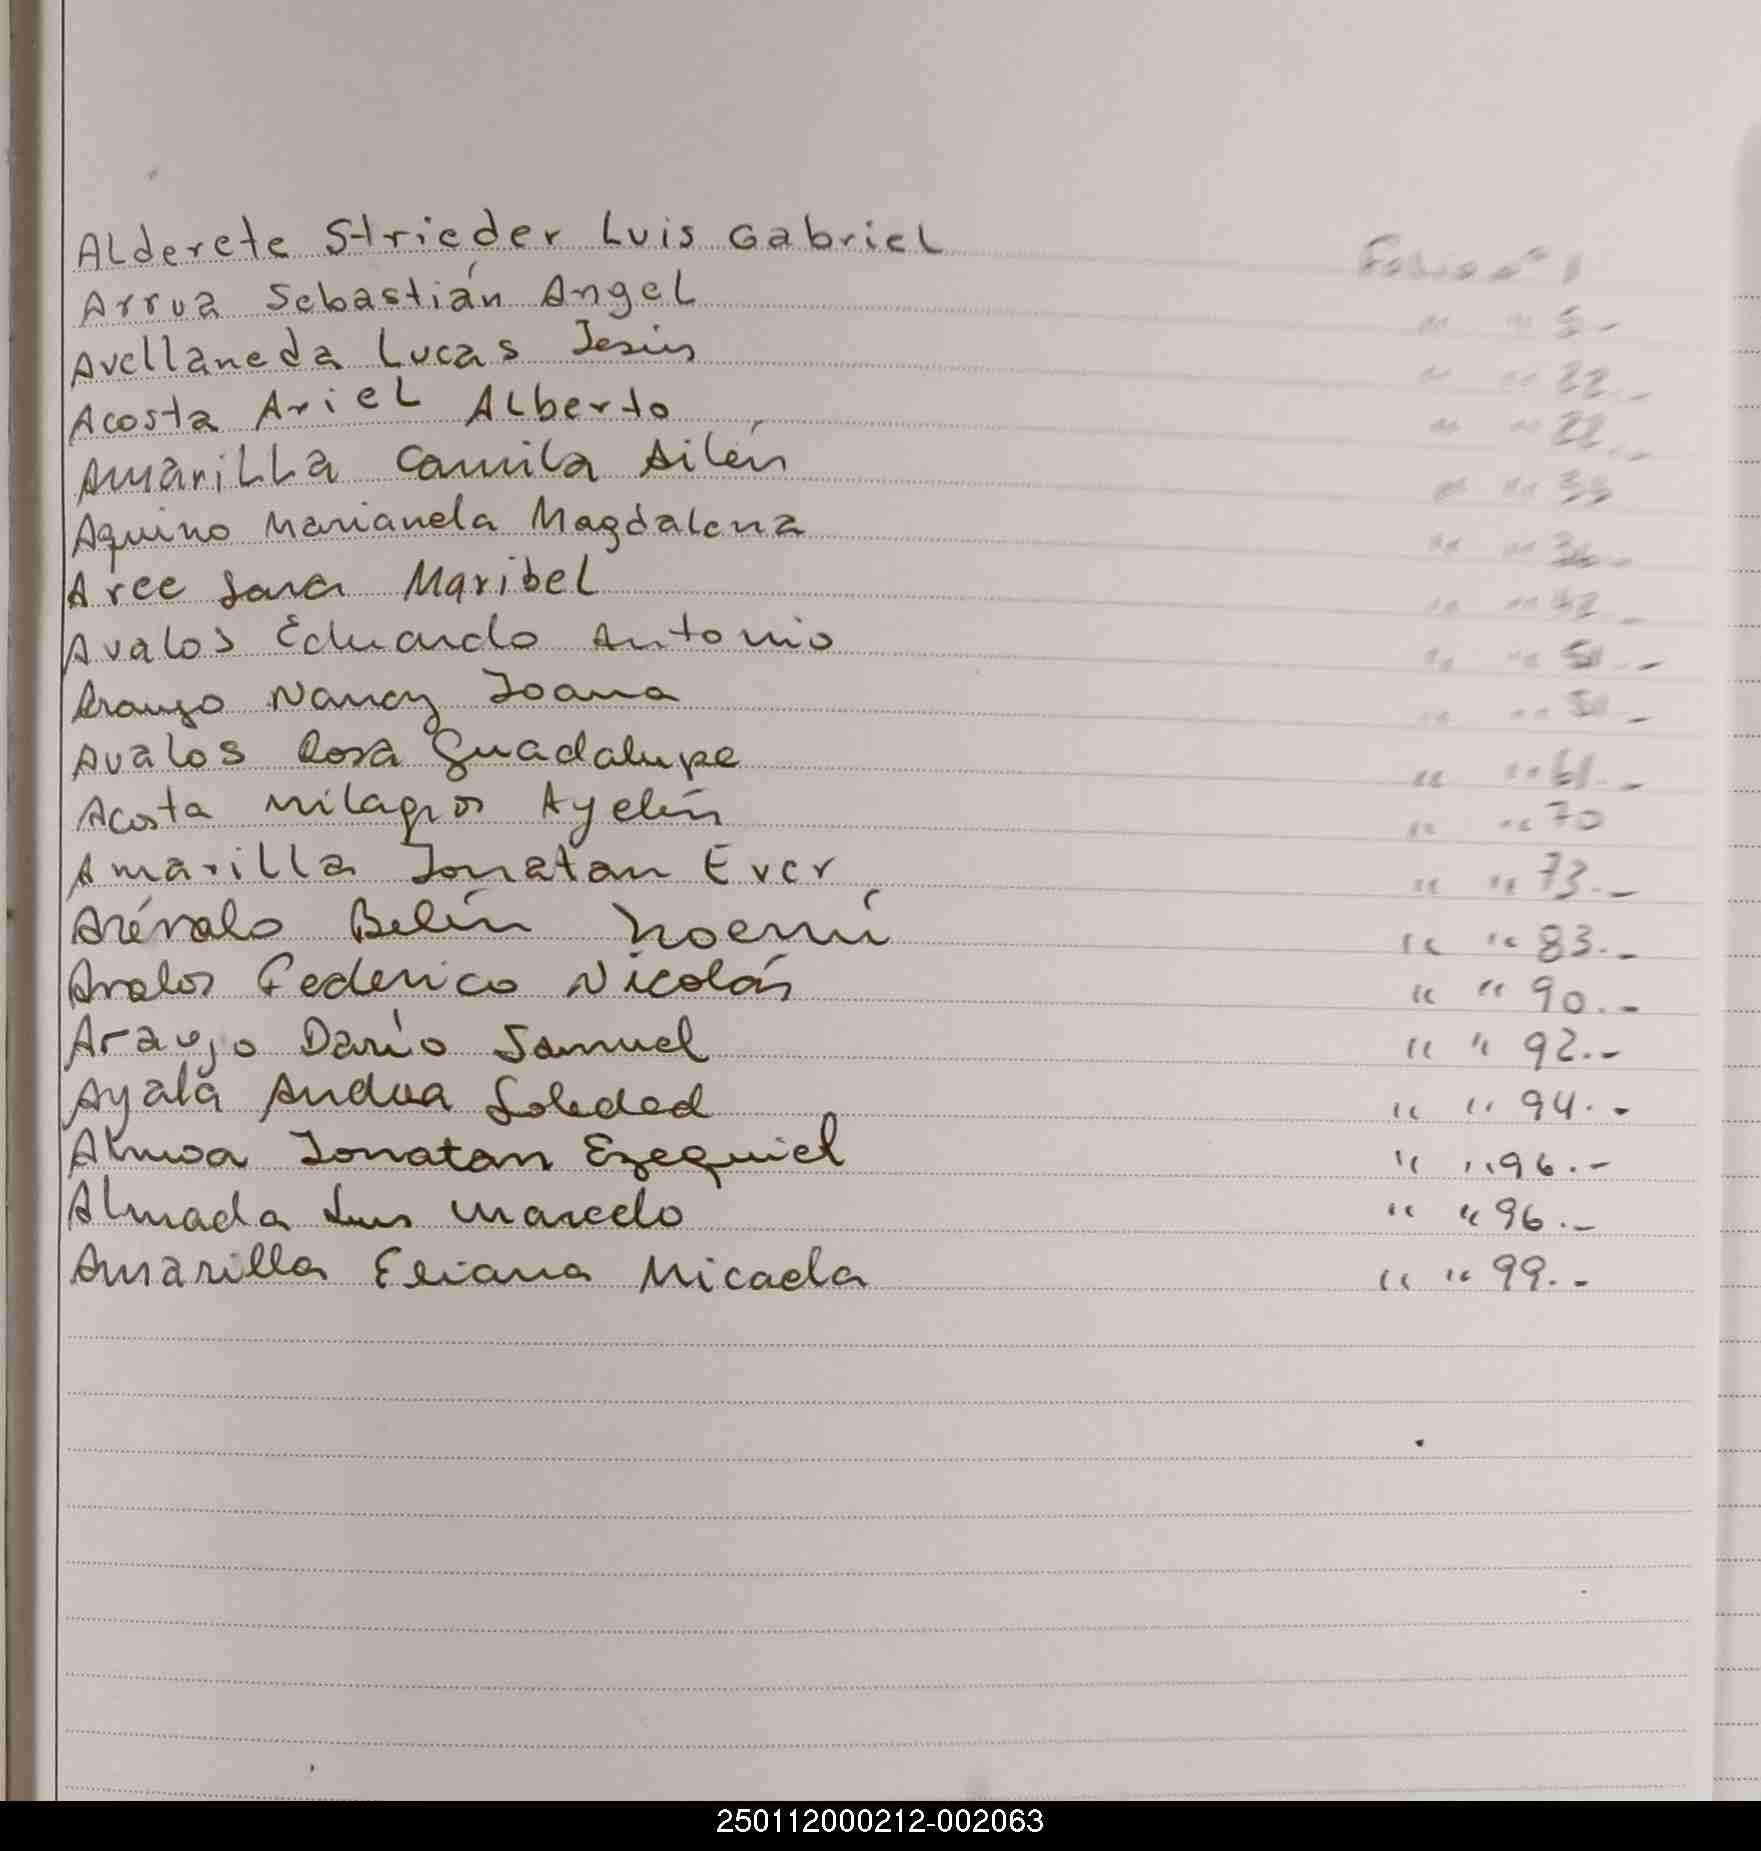 Alderete Strieder Luis Gabriel Folio nº 1
Arrua Sebastián Angel " " 5.-
Avellaneda Lucas Jesús " " 22.-
Acosta Ariel Alberto " " 22.-
Amarilla Camila Ailén " " 33
Aquino Marianela Magdalena " " 36.-
Arce Sara Maribel " " 42.-
Avalos Eduardo Antonio " " 50.-
Araujo Nancy Joana " " 50.-
Avalos Rosa Guadalupe " " 61.-
Acosta Milagros Ayelén " " 70
Amarilla Jonatan Ever " " 73.-
Arévalo Belén Noemí " " 83.-
Avalos Federico Nicolás " " 90.-
Araujo Darío Samuel " " 92.-
Ayala Andrea Soledad " " 94.-
Jonatan Ezequiel " " 96.-
Almada Luis Marcelo " " 96.-
Amarilla Eliana Micaela " " 99.-
250112000212-002063